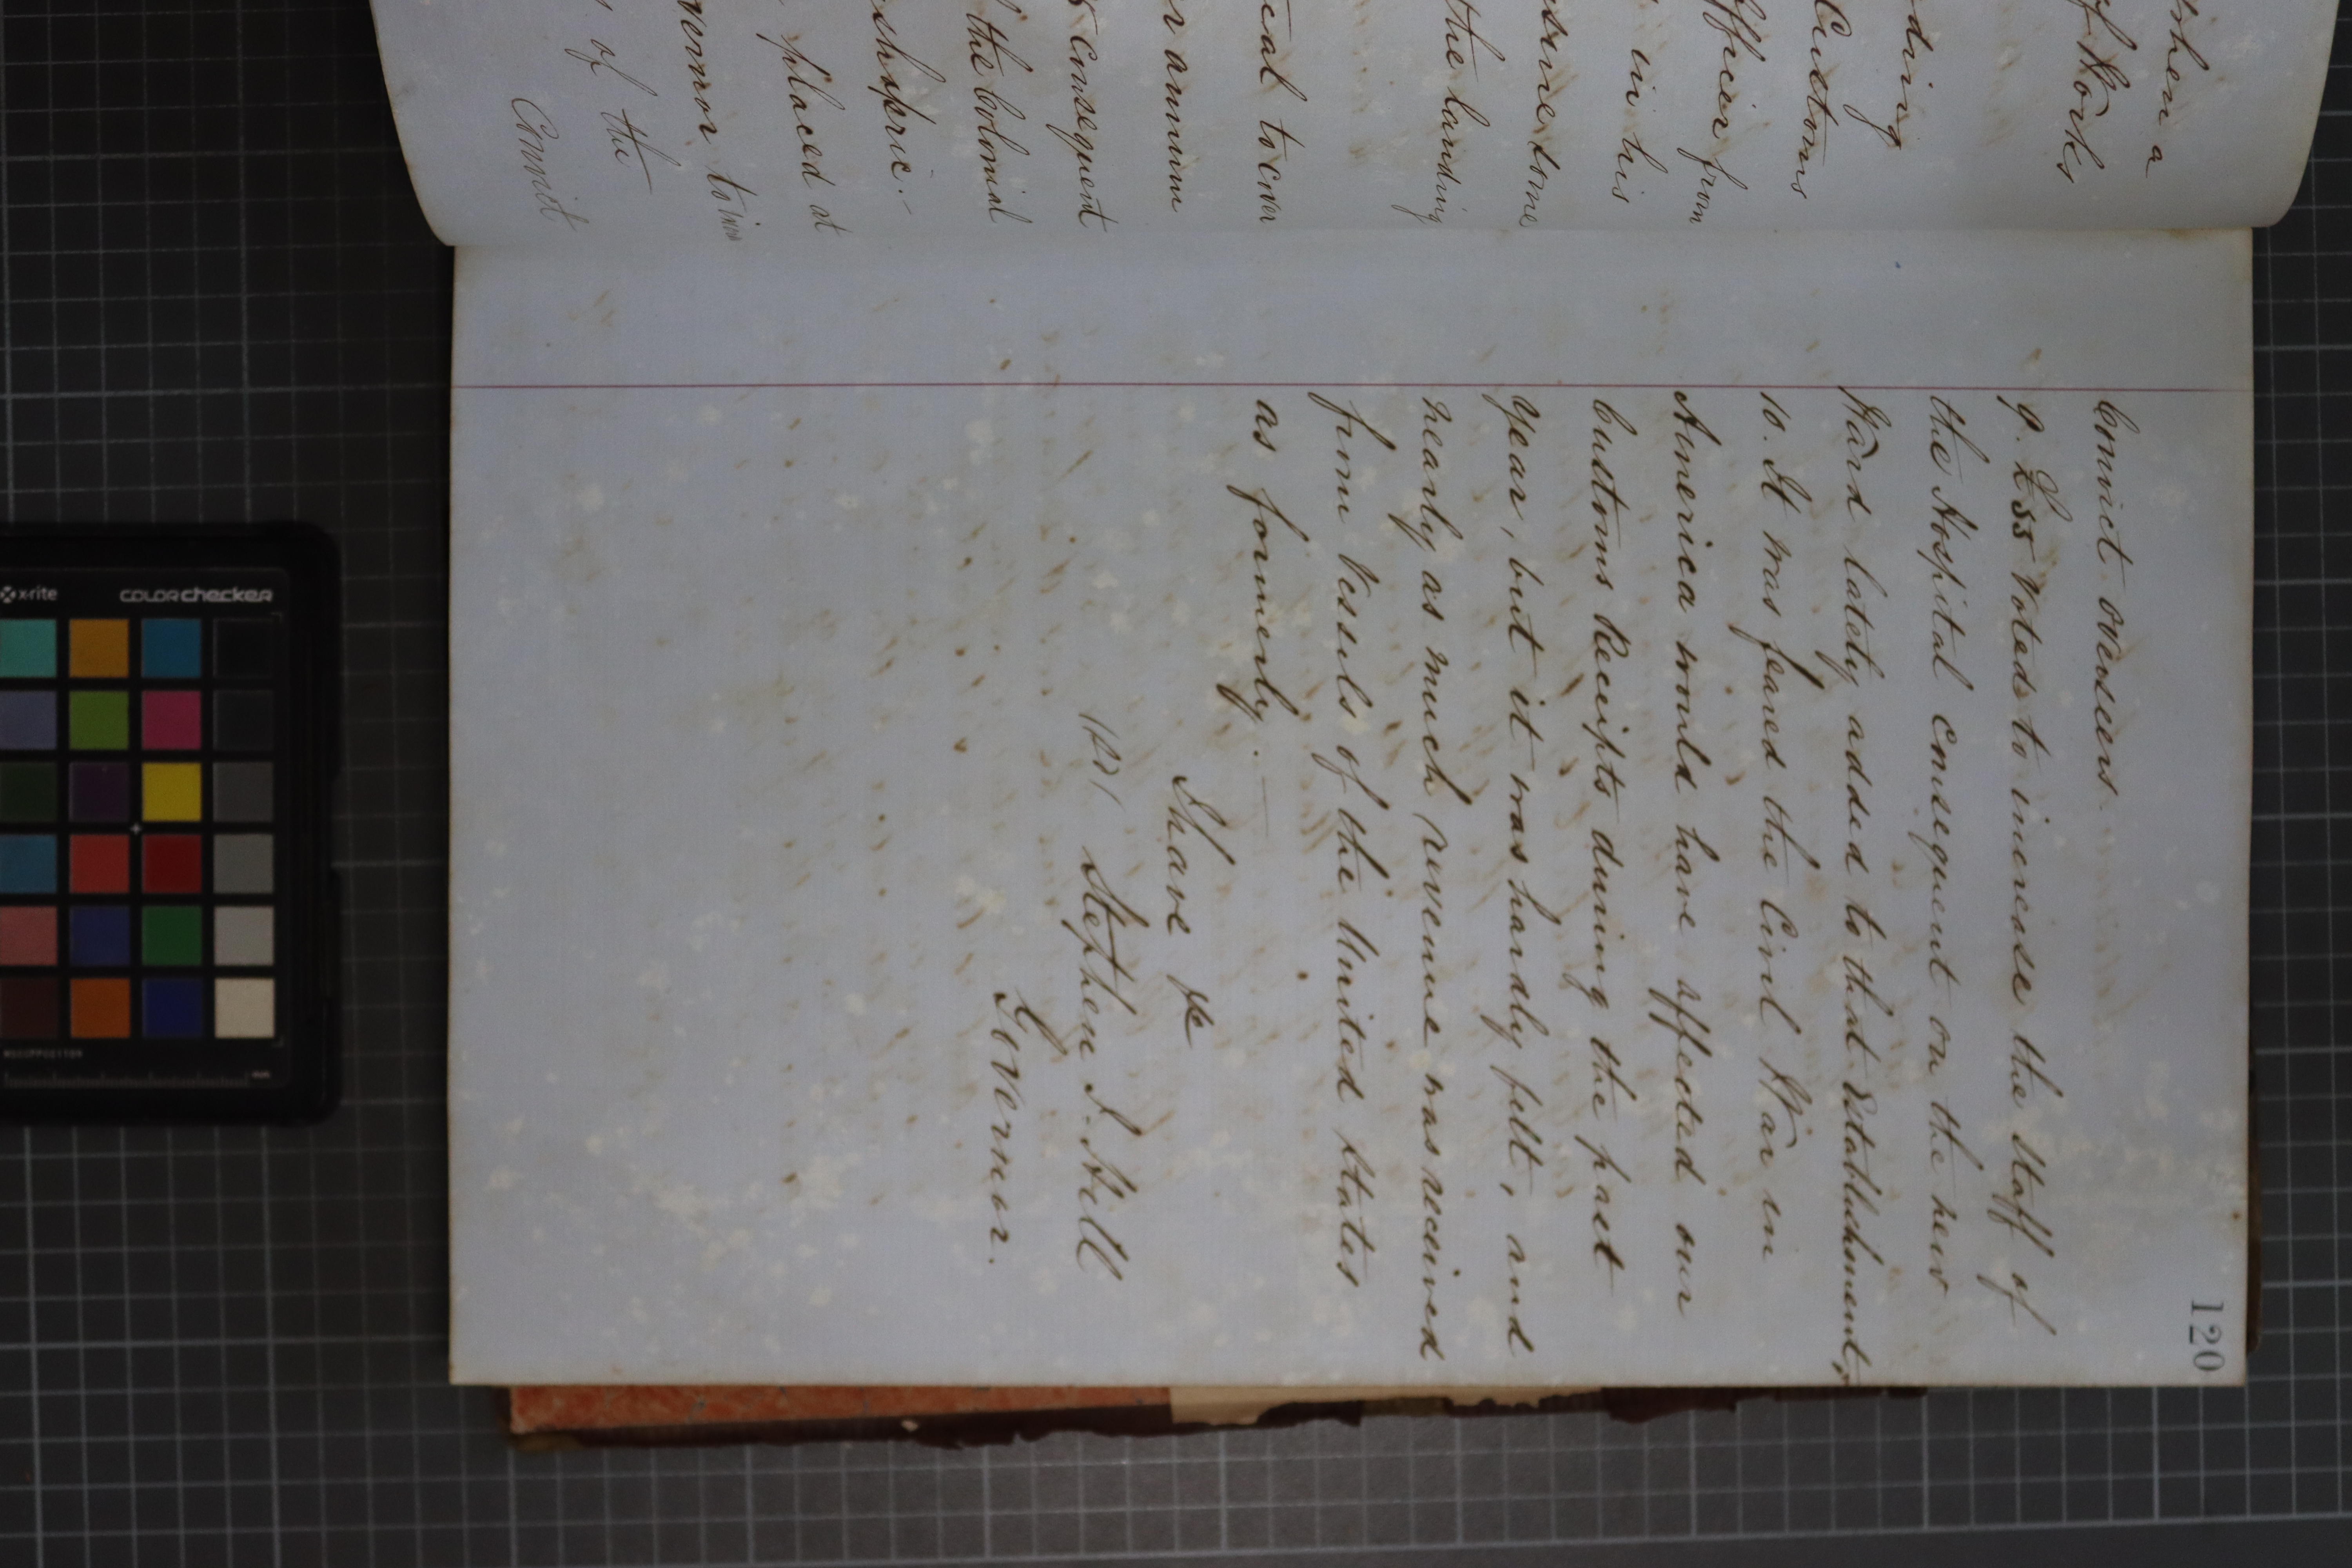 when a
of Works
ding
Customs
Officer from
in his
some
the landing
to cover
annum
consequent
the Colonial
placed at
of the
Convict
120
Convict overseers.
9. £55 Voted to increase the Staff of
the Hospital consequent on the new
Ward lately added to that Establishment,
10. It was feared the Civil War in
America would have affected our
Customs Receipts during the past
year, but it was hardly felt, and
nearly as much revenue was received
from Vessels of the United States
as formerly.
I have &c
Stephen J. Hill
Governor.
x-rite
colorchecker